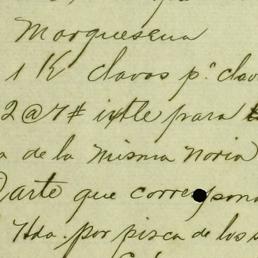 Marquesena
1 K clavos p.a clav
2 @ 7 # ixtle para
de la misma Noria
Parte que correspon
Hda. por pizca de los